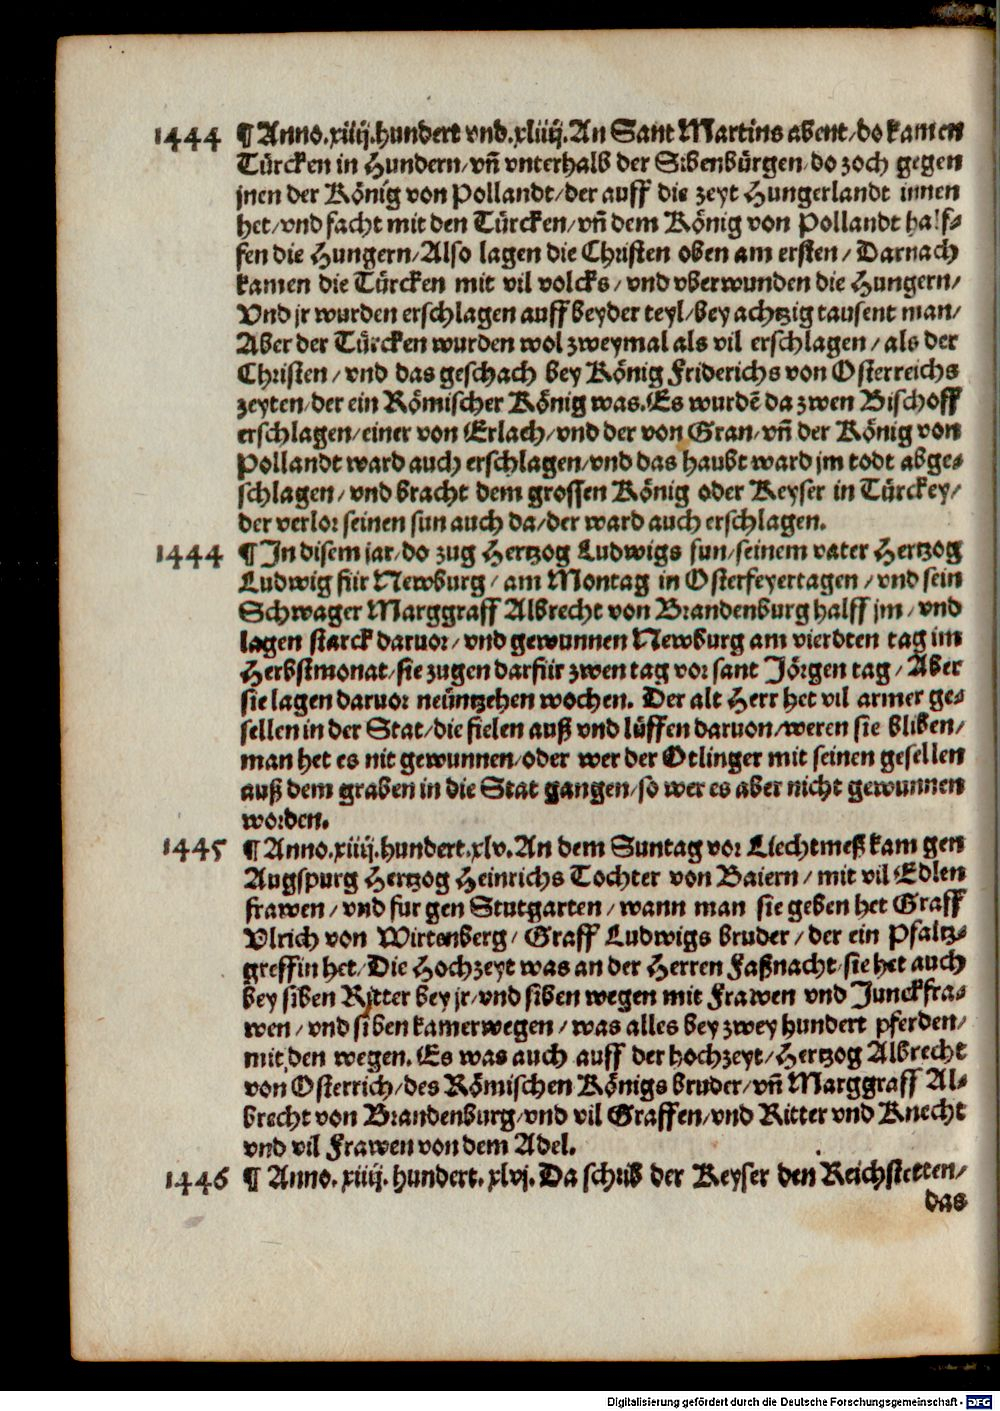 1444 ¶ Anno.xiiij.hundert vnd.xliiij.An Sant Martins abent/do kamen
Türcken in Hundern/vñ vnterhalb der Sibenbürgen/do zoch gegen
jnen der König von Pollandt/der auff die zeyt Hungerlandt innen
het/vnd facht mit den Türcken/vñ dem König von Pollandt half-
fen die Hungern/Also lagen die Christen oben am ersten/Darnach
kamen die Türcken mit vil volcks/vnd vberwunden die Hungern/
Vnd jr wurden erschlagen auff beyder teyl/bey achtzig tausent man/
Aber der Türcken wurden wol zweymal als vil erschlagen/als der
Christen/vnd das geschach bey König Friderichs von Osterreichs
zeyten/der ein Römischer König was.Es wurdē da zwen Bischoff
erschlagen/einer von Erlach/vnd der von Gran/vñ der König von
Pollandt ward auch erschlagen/vnd das haubt ward jm todt abge-
schlagen/vnd bracht dem grossen König oder Keyser in Türckey/
der verlor seinen sun auch da/der ward auch erschlagen.
1444 ¶ In disem jar/do zug Hertzog Ludwigs sun/seinem vater Hertzog
Ludwig für Newburg/am Montag in Osterfeyertagen/vnd sein
Schwager Marggraff Albrecht von Brandenburg halff jm/vnd
lagen starck daruor/vnd gewunnen Newburg am vierdten tag im
Herbstmonat/sie zugen darfür zwen tag vor sant Jörgen tag/Aber
sie lagen daruor neüntzehen wochen. Der alt Herr het vil armer ge-
sellen in der Stat/die fielen auß vnd lüffen daruon/weren sie bliben/
man het es nit gewunnen/oder wer der Otlinger mit seinen gesellen
auß dem graben in die Stat gangen/so wer es aber nicht gewunnen
worden.
1445 ¶ Anno.xiiij.hundert.xlv.An dem Suntag vor Liechtmeß kam gen
Augspurg Hertzog Heinrichs Tochter von Baiern/mit vil Edlen
frawen/vnd fur gen Stutgarten/wann man sie geben het Graff
Vlrich von Wirtenberg/Graff Ludwigs bruder/der ein Pfaltz-
greffin het/Die Hochzeyt was an der Herren Faßnacht/sie het auch
bey siben Ritter bey jr/vnd siben wegen mit Frawen vnd Junckfra-
wen/vnd siben kamerwegen/was alles bey zwey hundert pferden/
mit den wegen. Es was auch auff der hochzeyt/Hertzog Albrecht
von Osterrich/des Römischen Königs bruder/vñ Marggraff Al-
brecht von Brandenburg/vnd vil Graffen/vnd Ritter vnd Knecht
vnd vil Frawen von dem Adel.
1446 ¶ Anno.xiiij.hundert.xlvj.Da schrib der Keyser den Reichstetten/
das
Digitalisierung gefördert durch die Deutsche Forschungsgemeinschaft - DFG